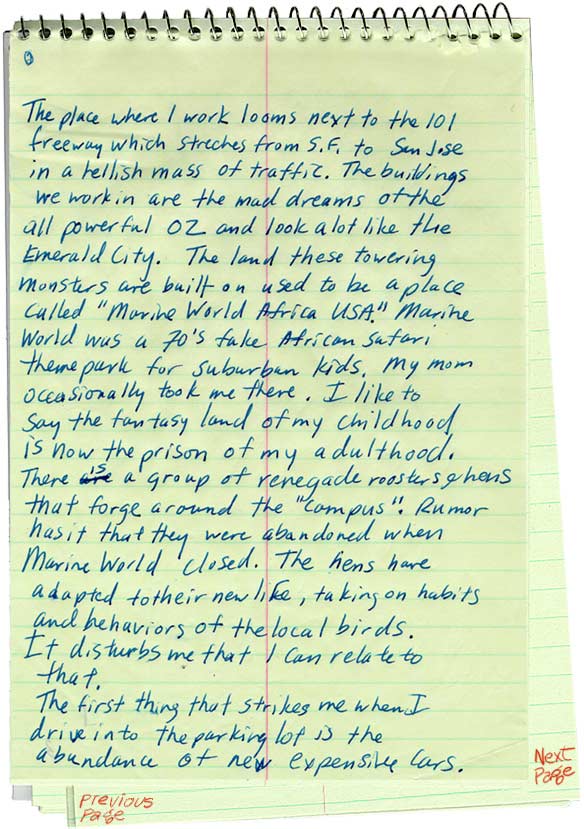 The place where I work looms next to the 101
freeway which streches from S.F. to San Jose
in a hellish mass of traffic. The buildings
we work in are the mad dreams of the
all powerful OZ and look a lot like the
Emerald City. The land these towering
monsters are built on used to be a place
called "Marine World Africa USA." Marine
World was a 70's fake African safari
theme park for suburban kids. My mom
occasionally took me there. I like to
say the fantasy land of my childhood
is now the prison of my adulthood.
There are is a group of renegade roosters & hens
that forge around the "campus". Rumor
has it that they were abandoned when
Marine World closed. The hens have
adapted to their new like, taking on habits
and behaviors of the local birds.
It disturbs me that I can relate to
that.
The first thing that strikes me when I
drive into the parking lot is the
abundance of new expensive cars.
Next
Page
Previous
Page